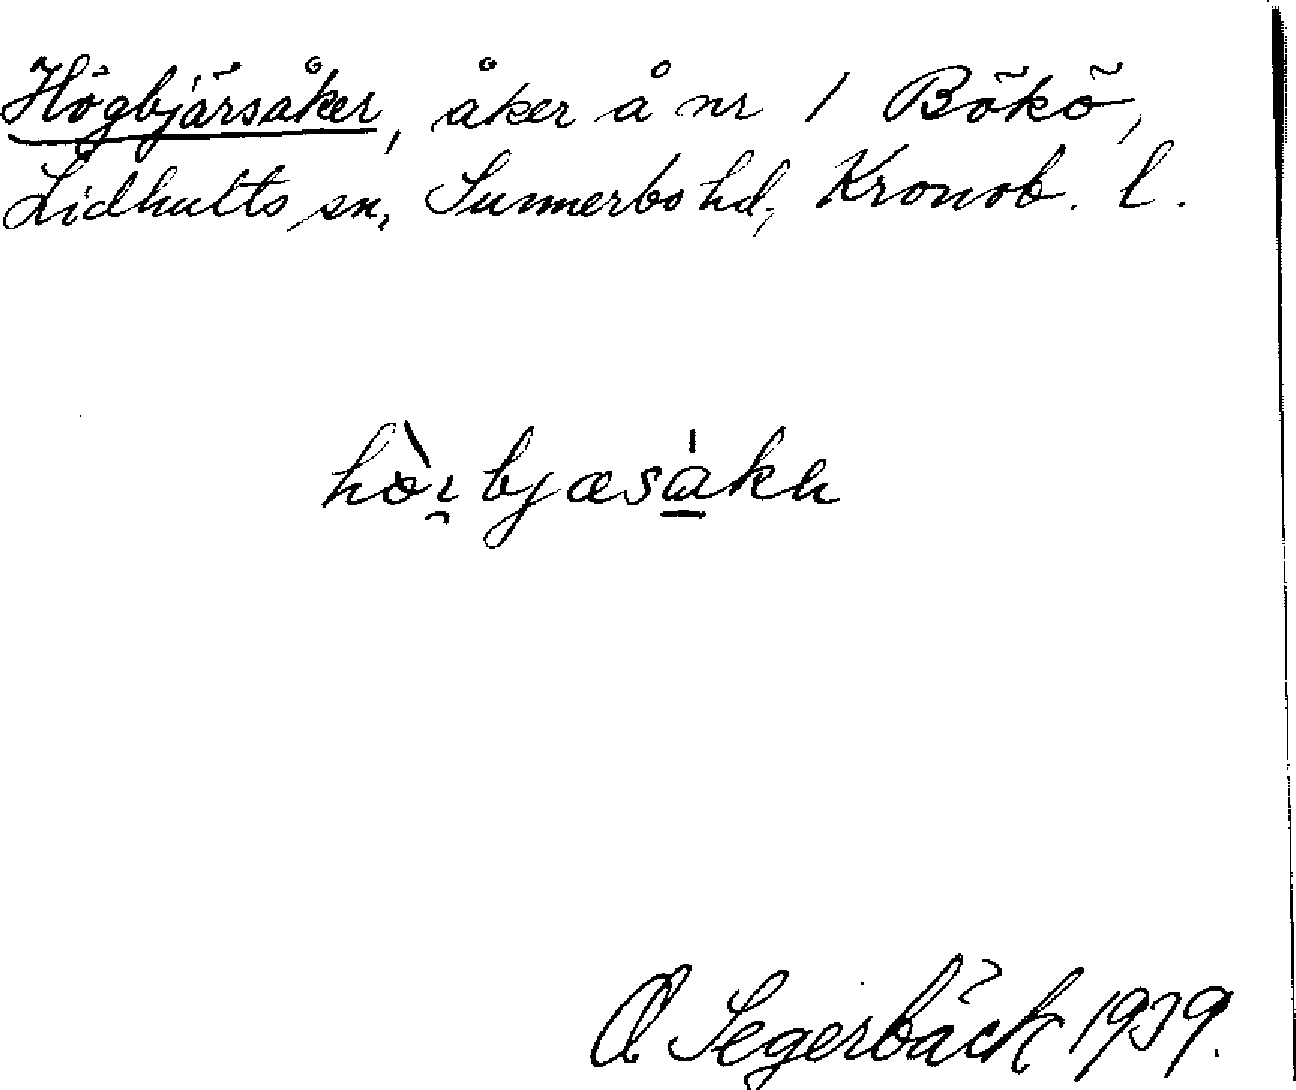 Högbjärsåker, åker å nr 1 Bökö,
Lidhults sn, Sunnerbo hd, Kronob. l.
hòi̯bjæsàkh
O. Segerbäck 1939.